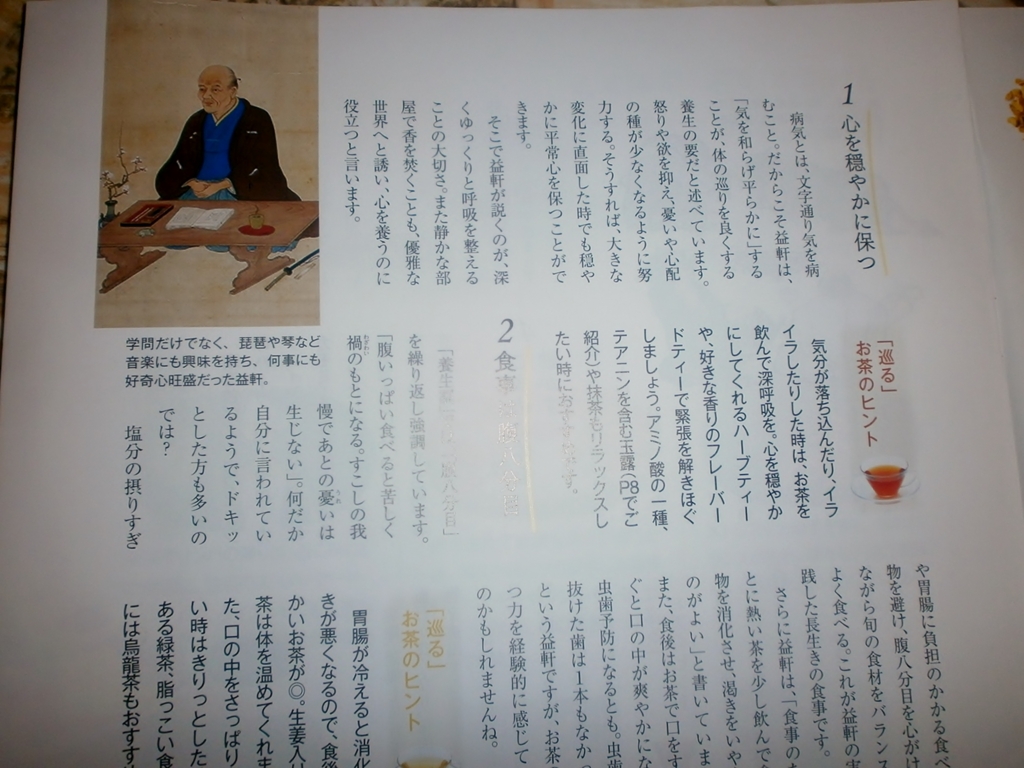 1 心を穏やかに保つ
病気とは、文字通り気を病
むこと。だからこそ益軒は、
「気を和らげ平らかに」する
ことが、体の巡りを良くする
養生の要だと述べています。
怒りや欲を抑え、憂いや心配
の種が少なくなるように努
力する。そうすれば、大きな
変化に直面した時でも穏や
かに平常心を保つことがで
きます。
そこで益軒が説くのが、深
くゆっくりと呼吸を整える
ことの大切さ。また静かな部
屋で香を焚くことも、優雅な
世界へと誘い、心を養うのに
役立つと言います。
学問だけでなく、琵琶や琴など
音楽にも興味を持ち、何事にも
好奇心旺盛だった益軒。
「巡る」
お茶のヒント
気分が落ち込んだり、イラ
イラしたりした時は、お茶を
飲んで深呼吸を。心を穏やか
にしてくれるハーブティー
や、好きな香りのフレーバー
ドティーで緊張を解きほぐ
しましょう。アミノ酸の一種、
テアニンを含む玉露（P8でご
紹介）や抹茶もリラックスし
たい時におすすめです。
2 食事は腹八分目
「養生 腹八分目」
を繰り返し強調しています。
「腹いっぱい食べると苦しく
禍のもとになる。すこしの我
慢であとの憂いは
生じない」。何だか
自分に言われてい
るようで、ドキッ
とした方も多いの
では？
塩分の摂りすぎ
や胃腸に負担のかかる食べ
物を避け、腹八分目を心がけ
ながら旬の食材をバランス
よく食べる。これが益軒の実
践した長生きの食事です。
さらに益軒は、「食事の
とに熱い茶を少し飲んで
物を消化させ、渇きをいや
のがよい」と書いていま
また、食後はお茶で口をす
ぐと口の中が爽やかにな
虫歯予防になるとも。虫歯
抜けた歯は1本もなかっ
という益軒ですが、お茶の
つ力を経験的に感じて
のかもしれませんね。
「巡る」
お茶のヒント
胃腸が冷えると消化
きが悪くなるので、食後
かいお茶が◎。生姜入り
茶は体を温めてくれま
た、口の中をさっぱり
い時はきりっとした
ある緑茶、脂っこい食
には烏龍茶もおすすめ